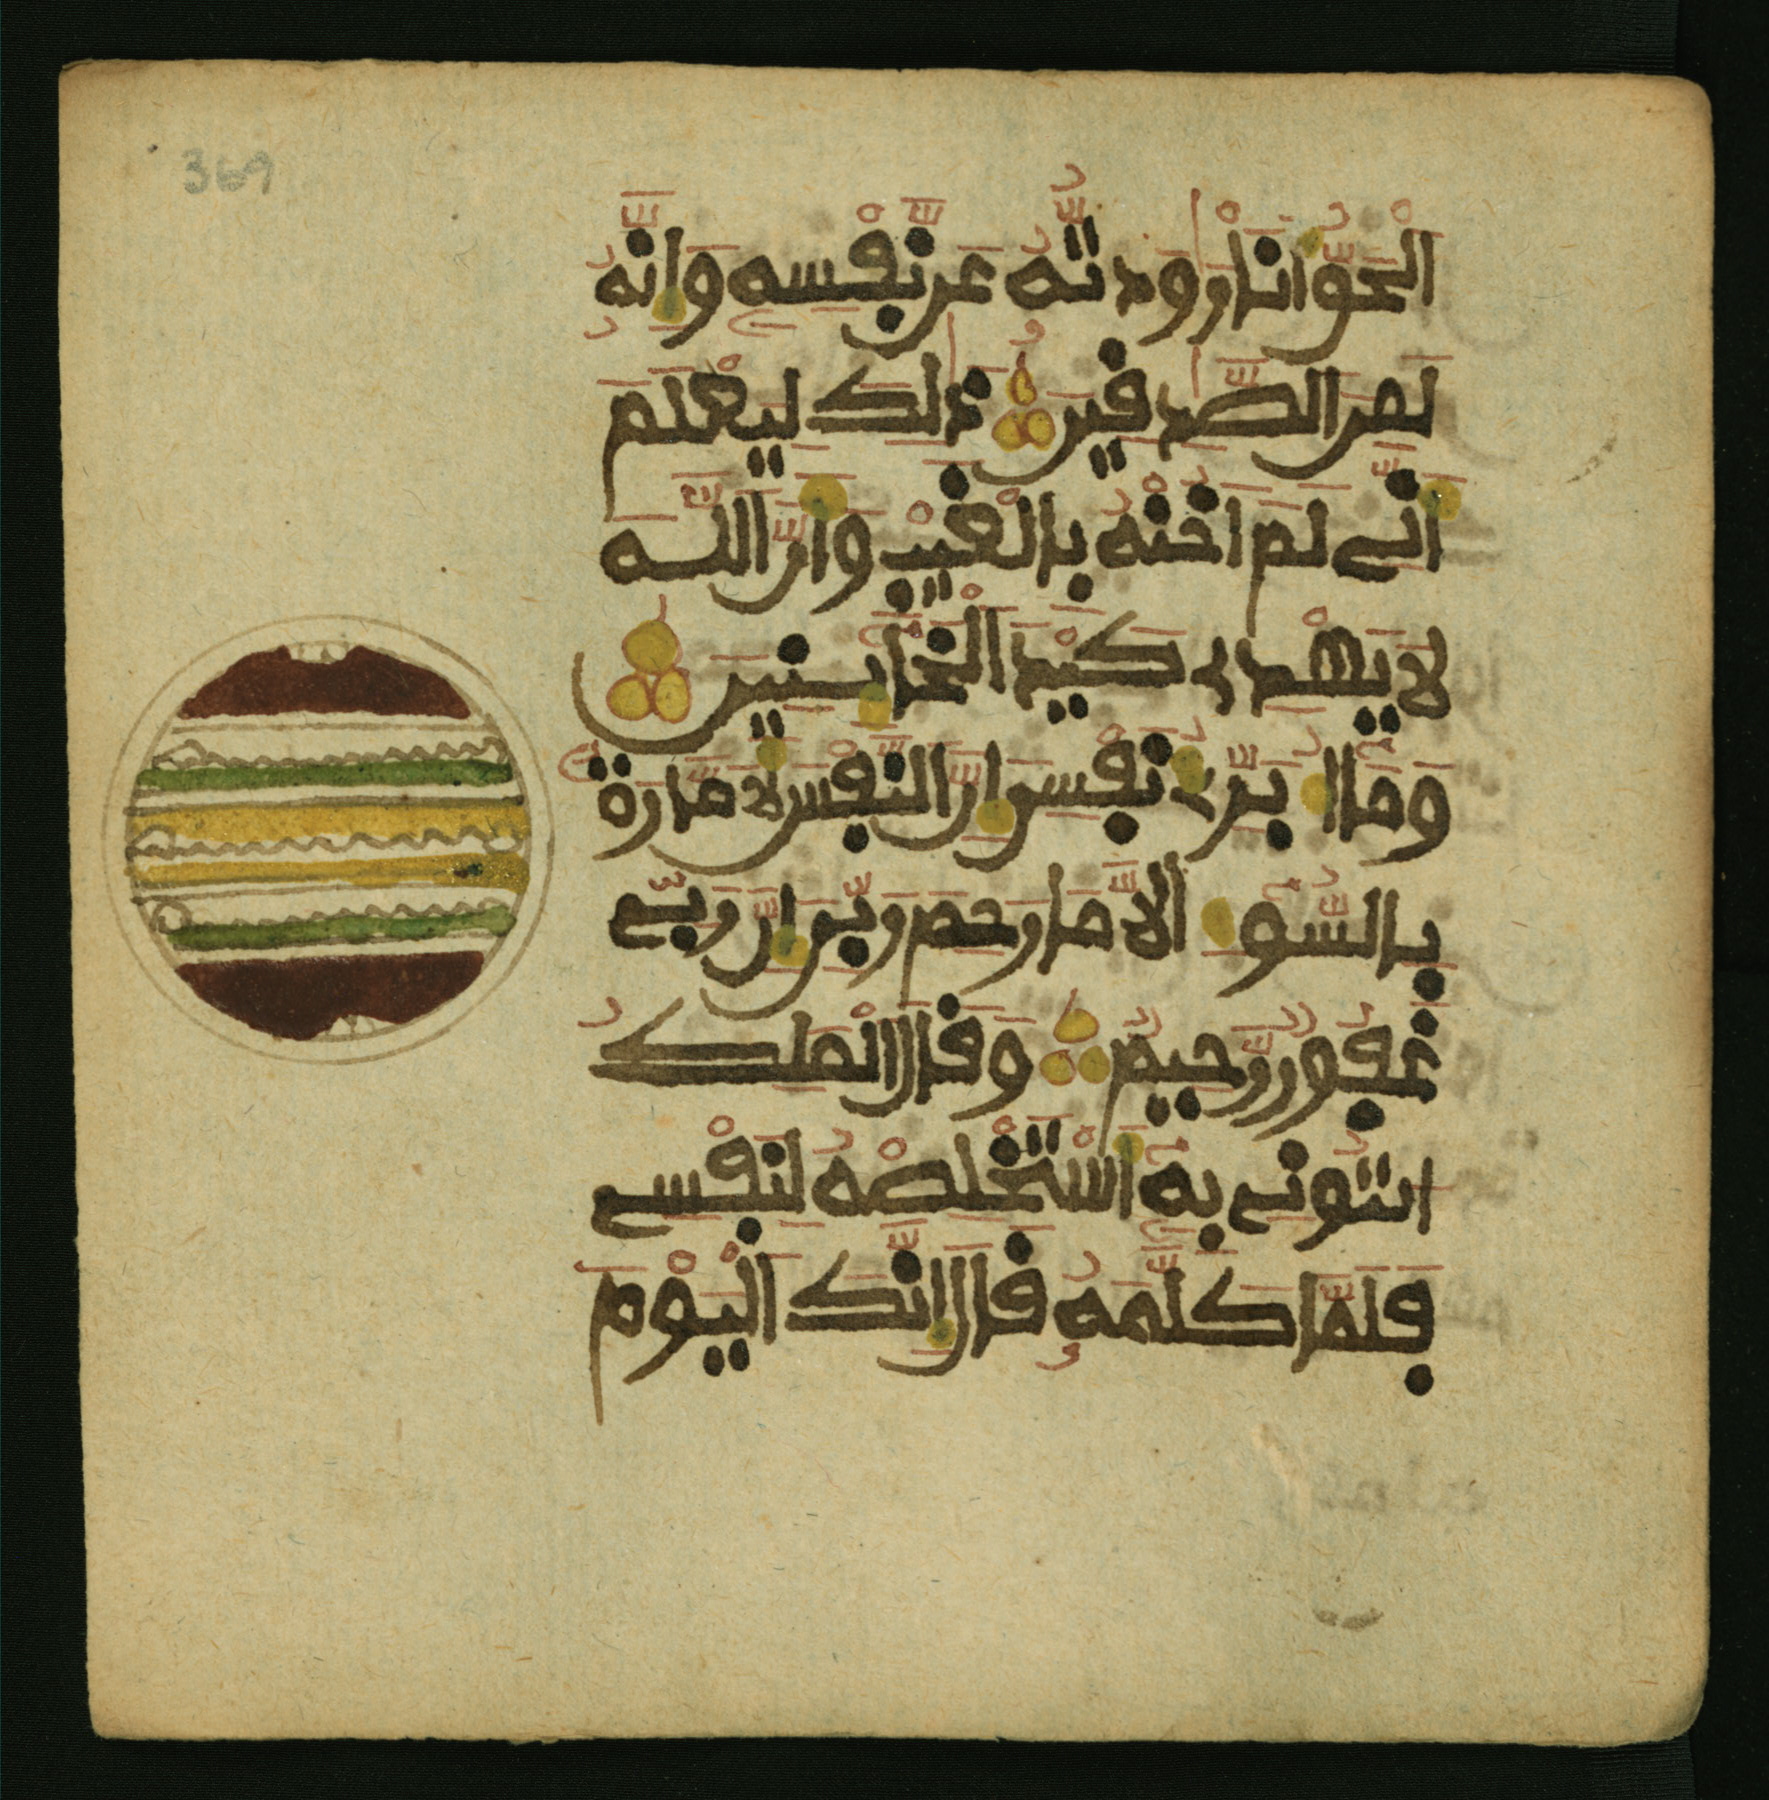 369
الْحَقُّ أَنَا رَٰوَدتُّهُ عَن نَّفْسِهِ وَإِنَّهُ
لَمِنَ الصَّٰدِقِينَ ذَٰلِكَ لِيَعْلَمَ
أَنِّي لَمْ أَخُنْهُ بِالْغَيْبِ وَأَنَّ اللَّهَ
لَا يَهْدِي كَيْدَ الْخَائِنِينَ
وَمَا أُبَرِّئُ نَفْسِي إِنَّ النَّفْسَ لَأَمَّارَةٌ
بِالسُّوءِ إِلَّا مَا رَحِمَ رَبِّي إِنَّ رَبِّي
غَفُورٌ رَّحِيمٌ وَقَالَ الْمَلِكُ
ائْتُونِي بِهِ أَسْتَخْلِصْهُ لِنَفْسِي
فَلَمَّا كَلَّمَهُ قَالَ إِنَّكَ الْيَوْمَ